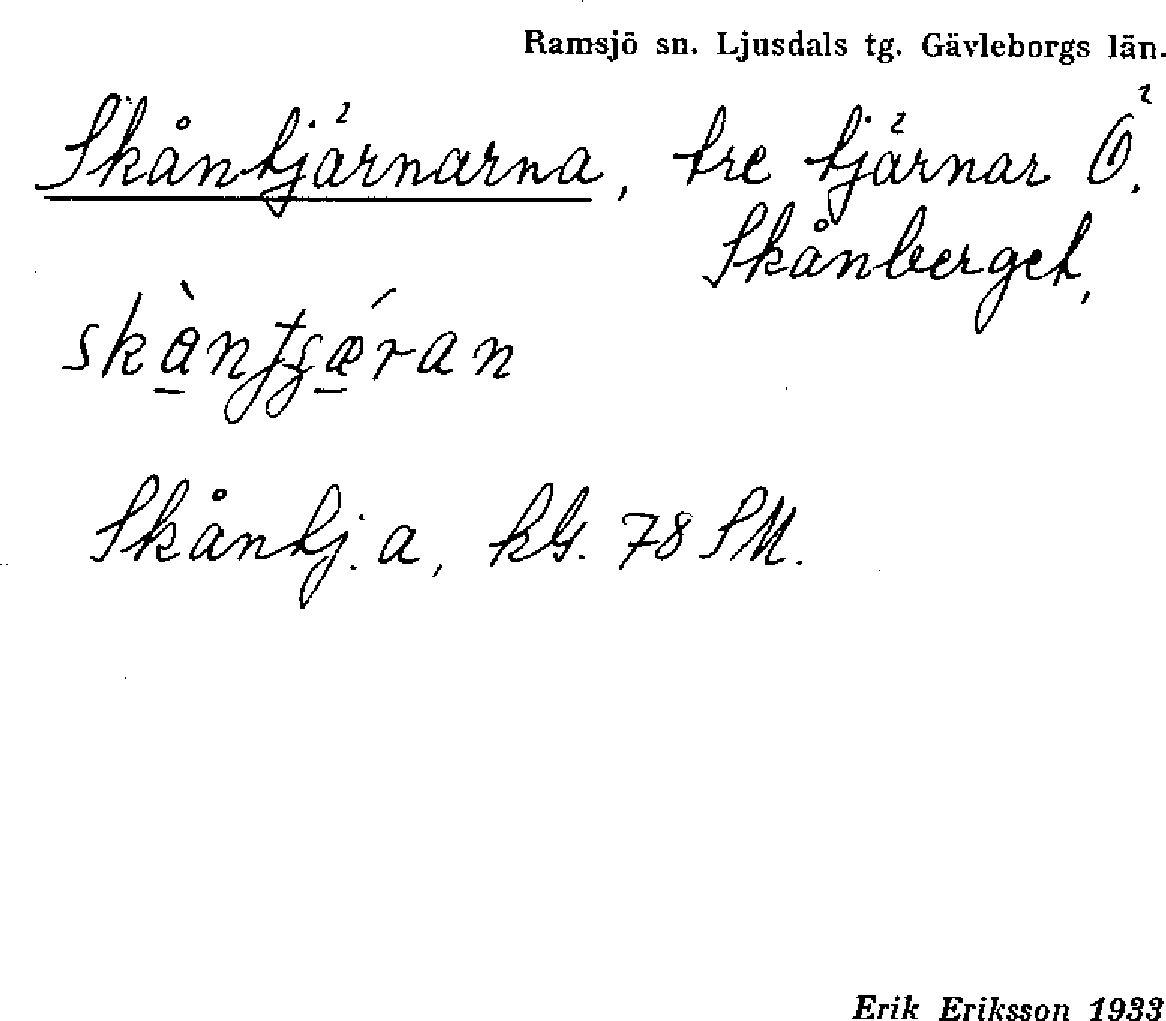 Ramsjö sn. Ljusdals tg. Gävleborgs län.
Skåntjärnarna, tre tjärnar Ö.
Skånberget,
Skåntj.a, kG. 78 SM.
Erik Eriksson 1933